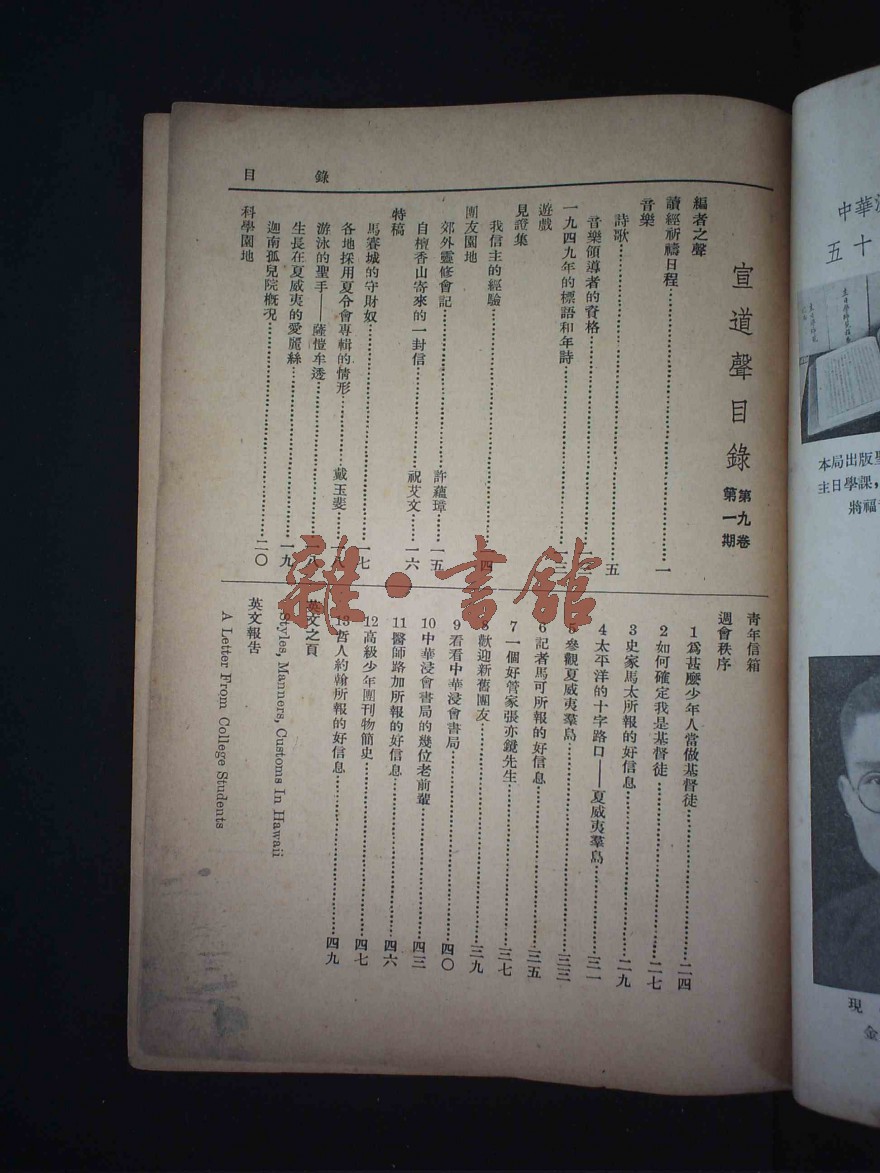 目錄
宣道聲目錄 第九卷 第一期
編者之聲
讀經祈禱日程……一
音樂
詩歌……五
音樂領導者的資格……
一九四九年的標語和年詩……一三
遊戲
見證集
我信主的經驗……四
團友園地
郊外靈修會記……許蘊璋…一五
自檀香山寄來的一封信……祝艾文…一六
特稿
馬賽城的守財奴……一七
各地採用夏令會專輯的情形……戴玉斐…一八
游泳的聖手——薩愷牟透……一八
生長在夏威夷的愛麗絲……一九
迦南孤兒院概况……二〇
科學園地
青年信箱
週會秩序
1 爲甚麼少年人當做基督徒……二四
2 如何確定我是基督徒……二七
3 史家馬太所報的好信息……二九
4 太平洋的十字路口——夏威夷羣島……三一
5 參觀夏威夷羣島……三三
6 記者馬可所報的好信息……三五
7 一個好管家張亦鏡先生……三七
8 歡迎新舊團友……三九
9 看看中華浸會書局……四〇
10 中華浸會書局的幾位老前輩……四三
11 醫師路加所報的好信息……四六
12 高級少年團刊物簡史……四七
13 哲人約翰所報的好信息……四九
英文之頁
Styles, Manners, Customs In Hawaii
英文報告
A Letter From College Students
雜·書館
中華
五十
本局出版聖
主日學課，
將福
現
金